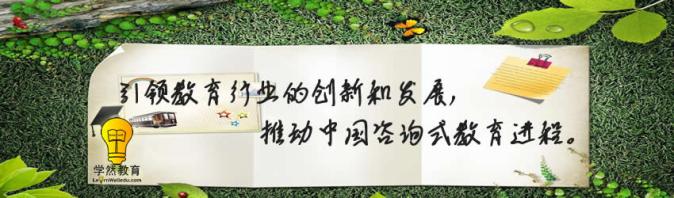 引领教育行业的创新和发展，
推动中国咨询式教育进程。
学然教育
LearnWelledu.com